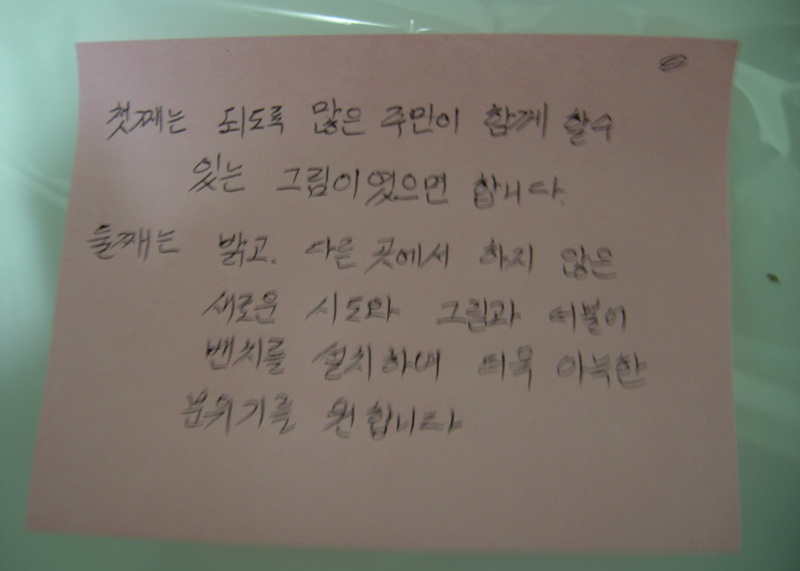 첫째는 되도록 많은 주민이 함께 할수
있는 그림이였으면 합니다.
둘째는 밝고, 다른 곳에서 하지 않은
새로운 시도와 그림과 더불어
밴치를 설치하여 더욱 아늑한
분위기를 원합니다